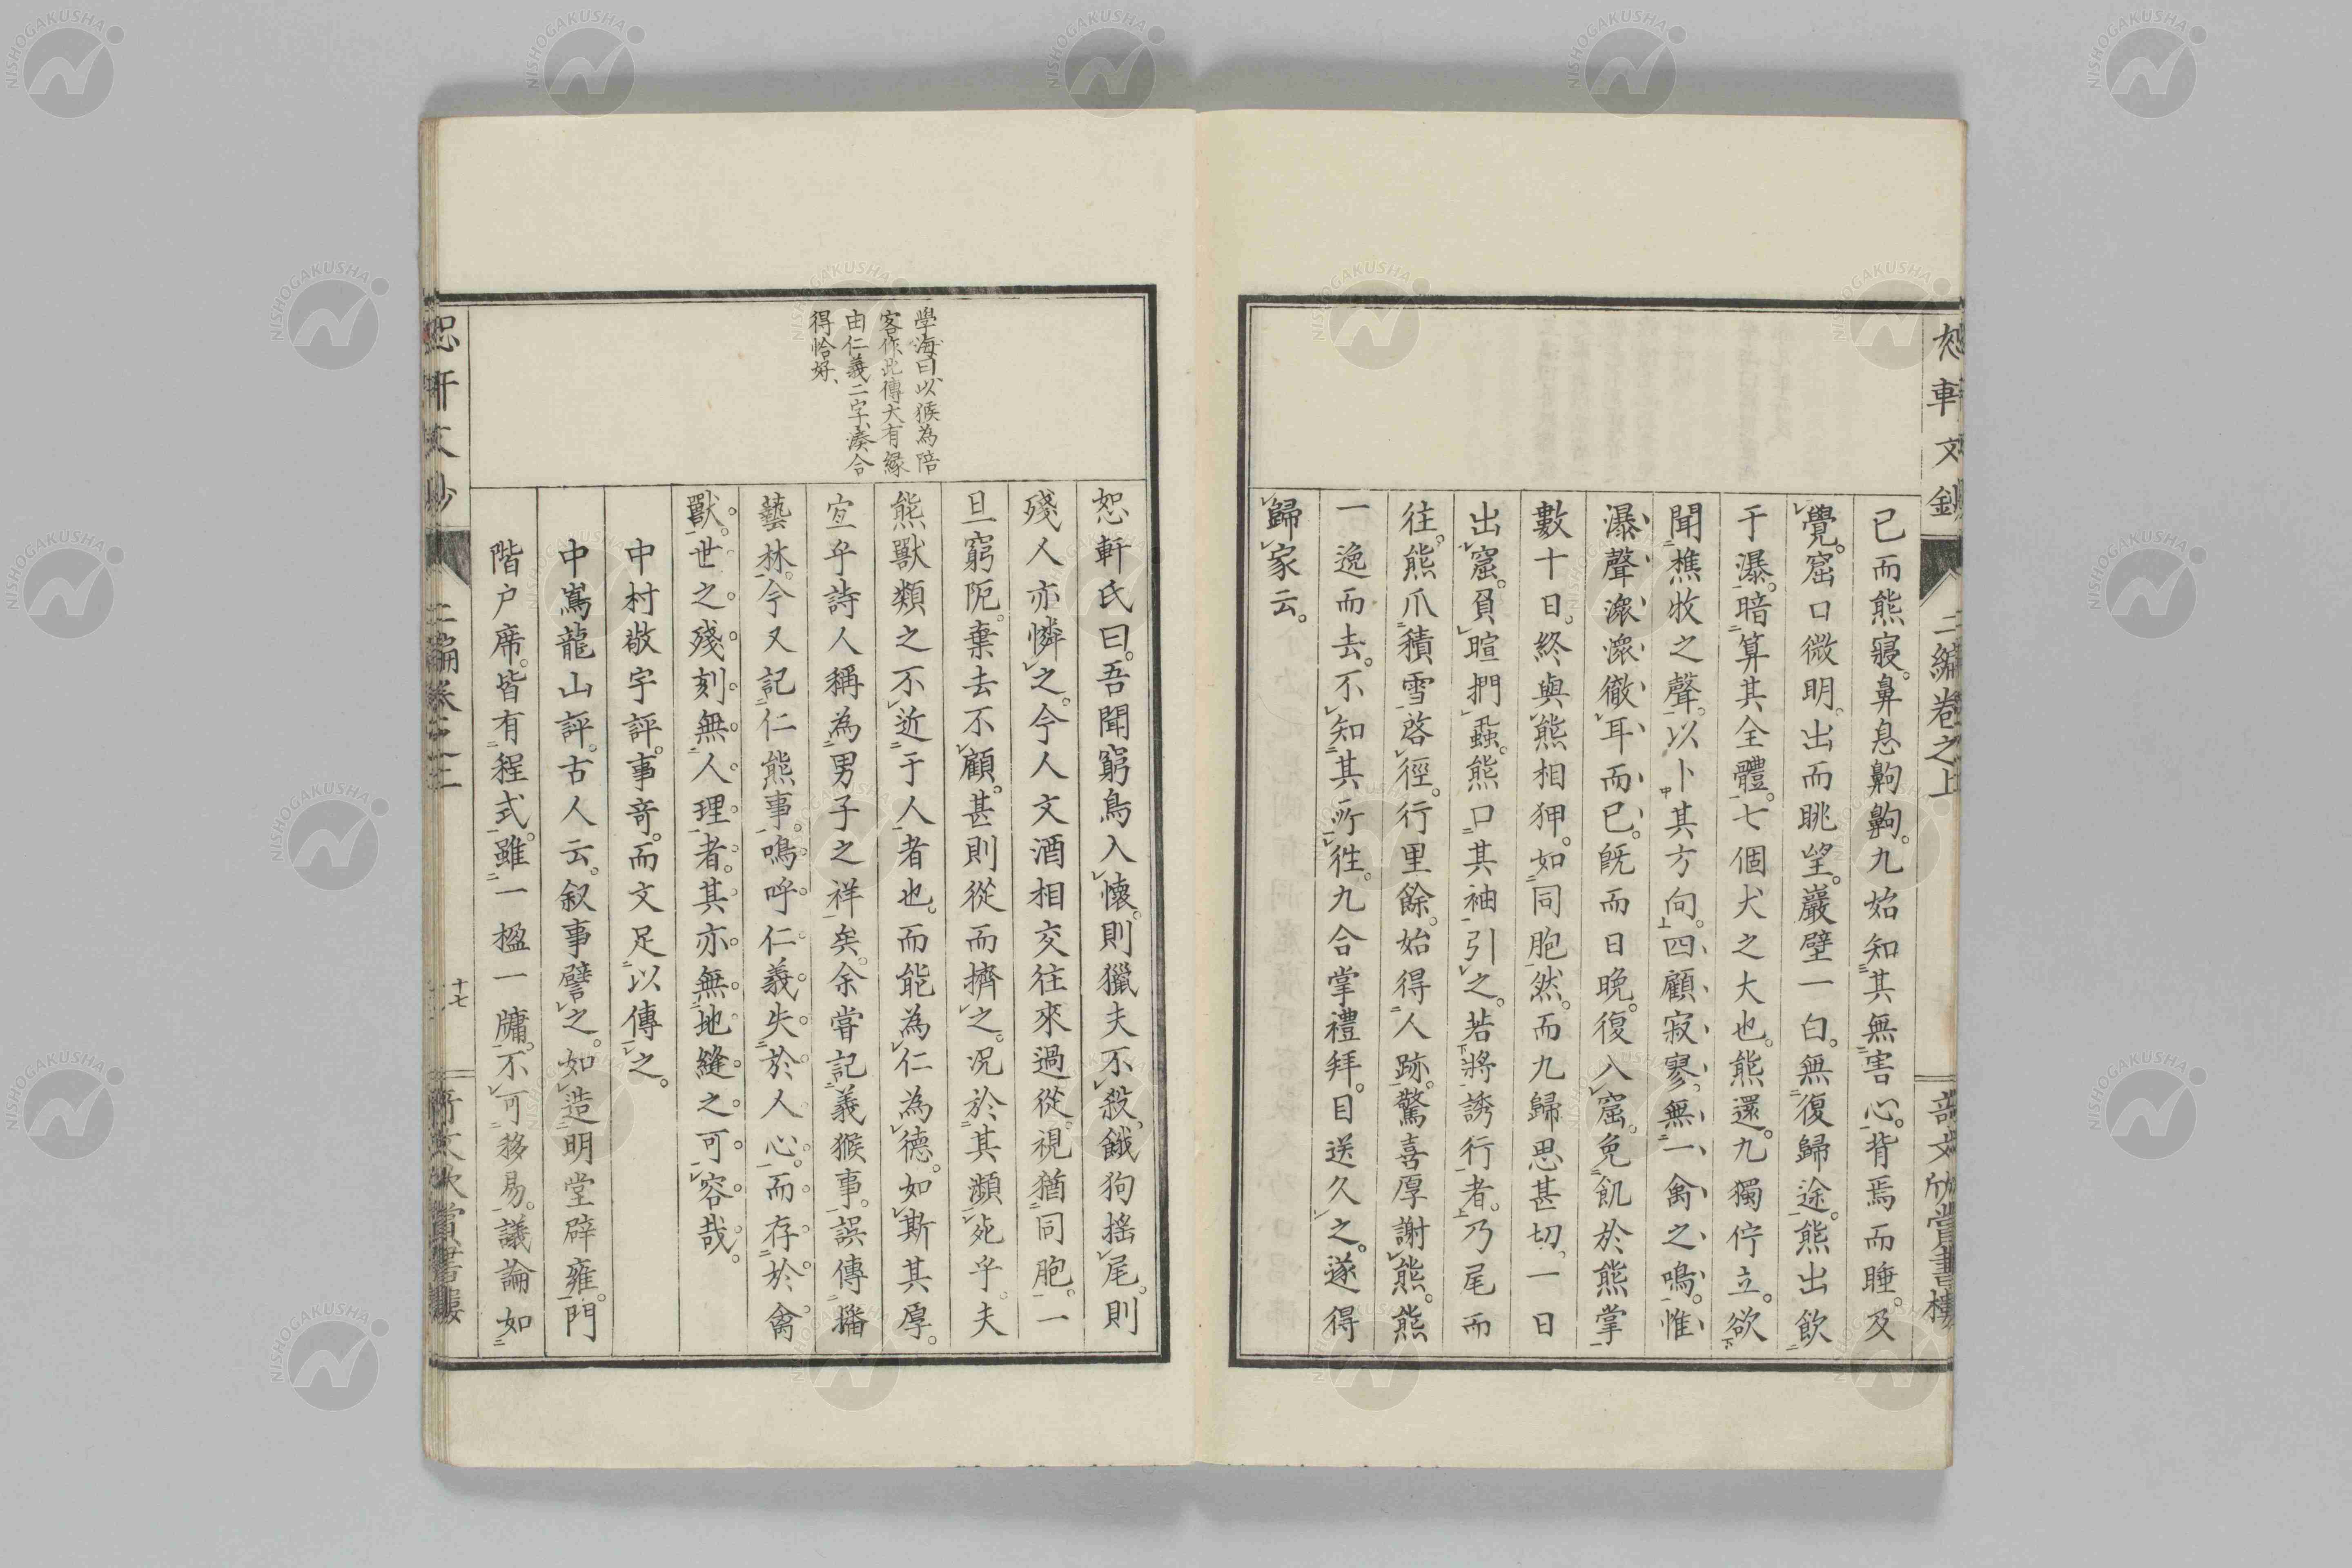 恕軒文鈔
二編卷之上
奇文欣賞書樓
已而熊寢。鼻息齁齁。九始知其無害心。背焉而睡。及
覺。窟口微明。出而眺望。巖壁一白。無復歸途。熊出飲
于瀑。暗算其全體。七個犬之大也。熊還。九獨佇立。欲
聞樵牧之聲。以卜其方向。四顧寂寥。無一禽之鳴。惟
瀑聲滾滾徹耳而已。既而日晚。復入窟。免飢於熊掌
數十日。終與熊相狎。如同胞然。而九歸思甚切。一日
出窟。負暄捫蝨。熊口其袖引之。若將誘行者。乃尾而
往。熊爪積雪啓徑。行里餘。始得人跡。驚喜厚謝熊。熊
一逸而去。不知其所往。九合掌禮拜。目送久之。遂得
歸家云。
學海曰、以猴為陪
客作此傳大有緣
由仁義二字、湊合
得恰好、
恕軒氏曰。吾聞窮鳥入懷。則獵夫不殺。餓狗搖尾。則
殘人亦憐之。今人文酒相交往來過從。視猶同胞。一
旦窮阨。棄去不顧。甚則從而擠之。况於其瀕死乎。夫
熊獸類之不近于人者也。而能為仁為德。如斯其厚。
宜乎詩人稱為男子之祥矣。余嘗記義猴事。誤傳播
藝林。今又記仁熊事。嗚呼仁義失於人心。而存於禽
獸。世之殘刻無人理者。其亦無地縫之可容哉。
中村敬宇評。事奇。而文足以傳之。
中嶌龍山評。古人云。叙事譬之。如造明堂辟雍。門
階户席。皆有程式。雖一楹一牖。不可移易。議論如
恕軒文鈔
二編卷之上
十七
奇文欣賞書樓
NISHOGAKUSHA